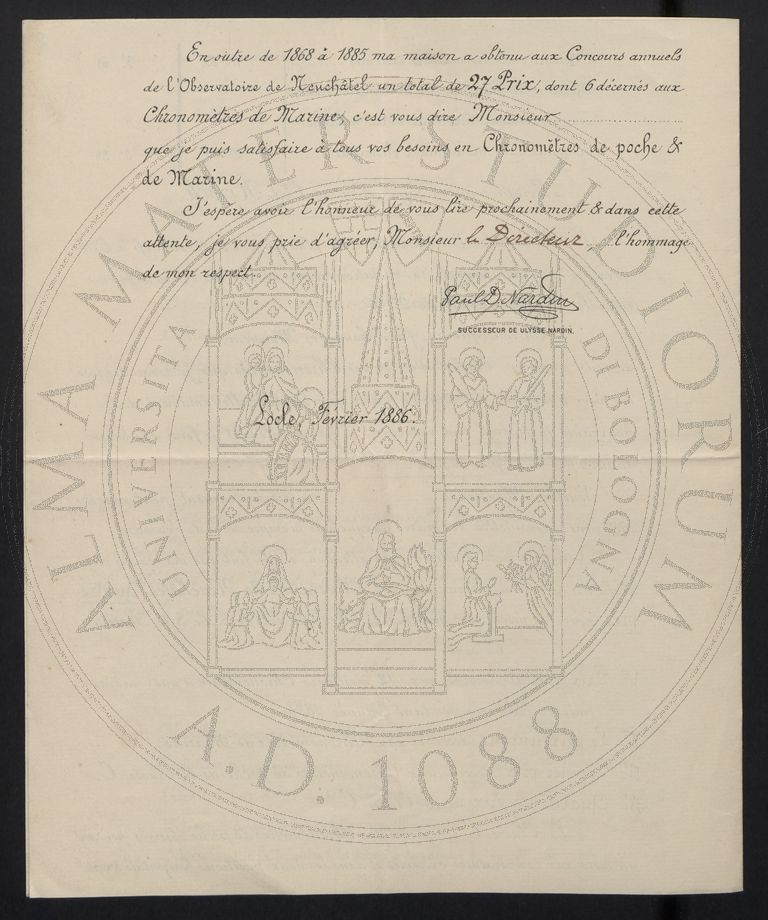 En outre de 1868 à 1885 ma maison a obtenu aux Concours annuels
de l'Observatoire de Neuchâtel un total de 27 Prix, dont 6 décernés aux
Chronomètres de Marine, c'est vous dire Monsieur
que je puis satisfaire à tous vos besoins en Chronomètres de poche &
de Marine.
J'espère avoir l'honneur de vous lire prochainement & dans cette
attente, je vous prie d'agréer, Monsieur le Directeur, l'hommage
de mon respect.
Paul D. Nardin
SUCCESSEUR DE ULYSSE NARDIN.
Locle, Février 1886.
ALMA MATER STUDIORUM
UNIVERSITA DI BOLOGNA
A.D. 1088